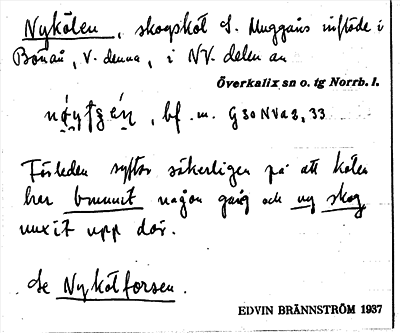 Nykölen, skogsköl S. Muggåns inflöde i
Bönån, V. denna, i NV. delen av
Överkalix sn o. tg Norrb. l.
bf. m. G 30 NV a 8, 33
Förleden syftar säkerligen på att kölen
har brunnit någon gång och ny skog
vuxit upp där.
Se Nykölforsen.
EDVIN BRÄNNSTRÖM 1937